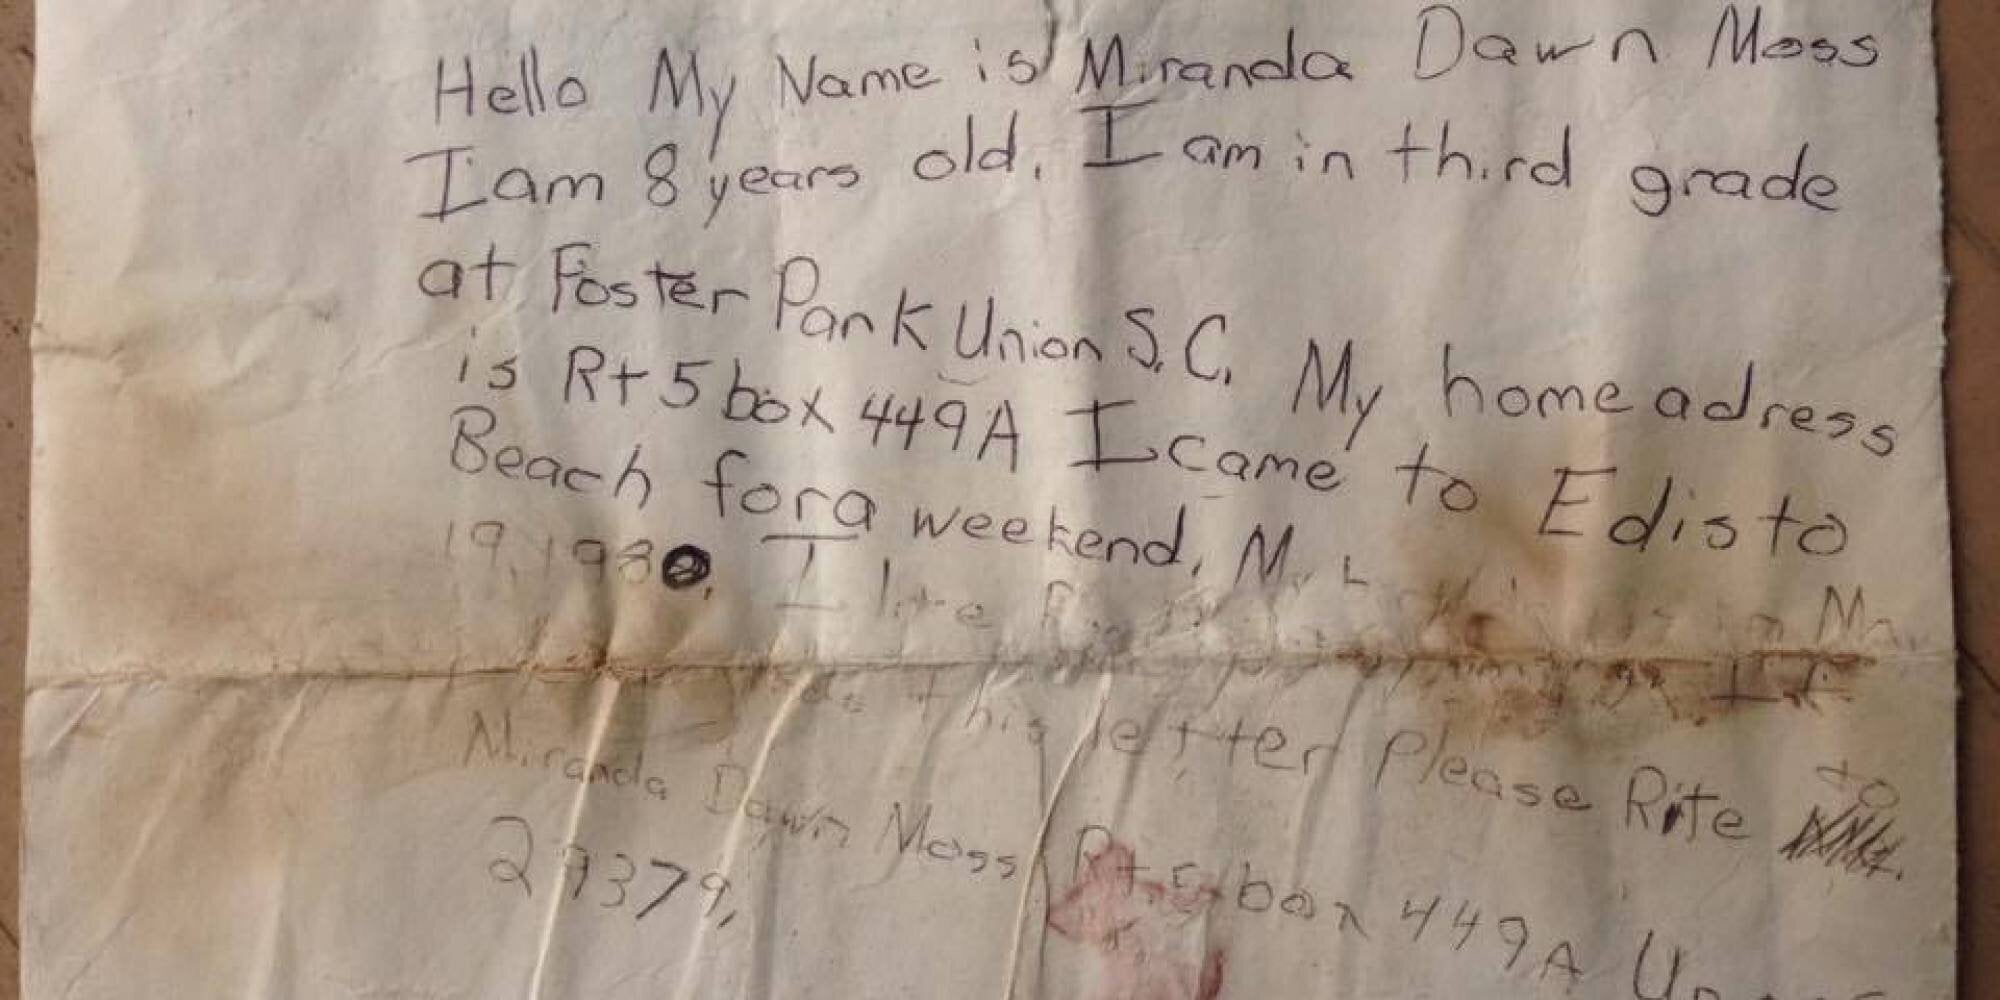 Hello My Name is Miranda Dawn Moss
I am 8 years old. I am in third grade
at Foster Park Union S.C. My home adress
is Rt 5 box 449A I came to Edisto
Beach for a weekend, My
19, 1980. I like
this letter Please Rite to
Miranda Dawn Moss Rt 5 box 449A
29379,